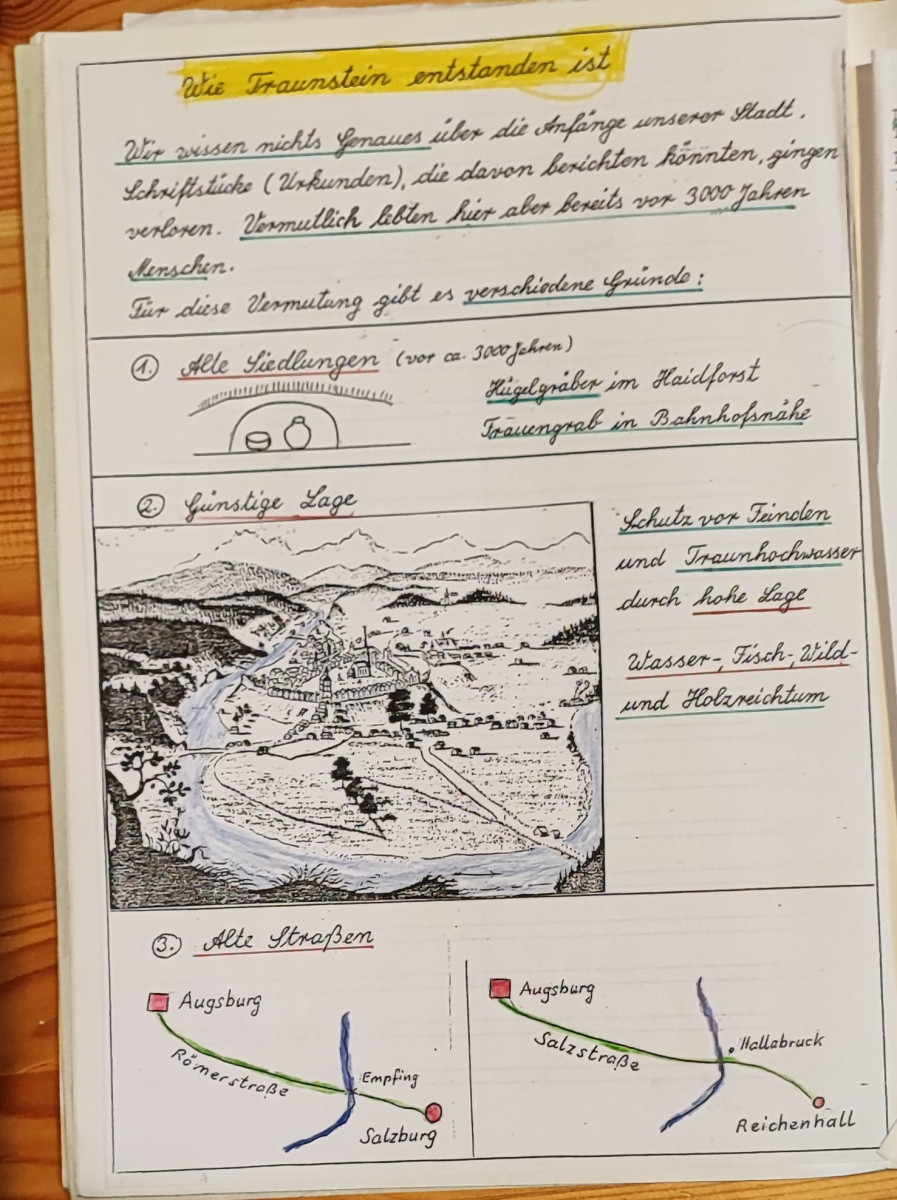 Wie Traunstein entstanden ist
Wir wissen nichts Genaues über die Anfänge unserer Stadt.
Schriftstücke (Urkunden), die davon berichten könnten, gingen
verloren. Vermutlich lebten hier aber bereits vor 3000 Jahren
Menschen.
Für diese Vermutung gibt es verschiedene Gründe:
1. Alte Siedlungen (vor ca. 3000 Jahren)
Hügelgräber im Haidforst
Frauengrab in Bahnhofsnähe
2. Günstige Lage
Schutz vor Feinden
und Traunhochwasser
durch hohe Lage
Wasser-, Fisch-, Wild-
und Holzreichtum
3. Alte Straßen
Augsburg
Römerstraße
Empfing
Salzburg
Augsburg
Salzstraße
Hallabruck
Reichenhall